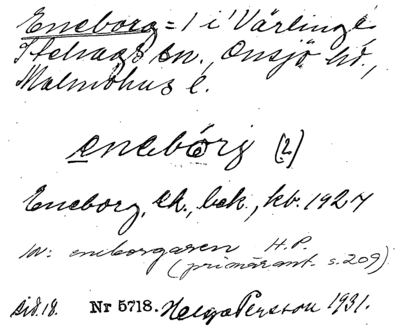 Eneborg = 1 i Värlinge
Stehags sn., Onsjö hd.,
Malmöhus l.
enebörj (2)
Eneborg, ek., bek., kb. 1927
in: eneborgaren H.P.
(primärant. s. 209)
sid. 18. Nr 5718. Helge Persson 1931.